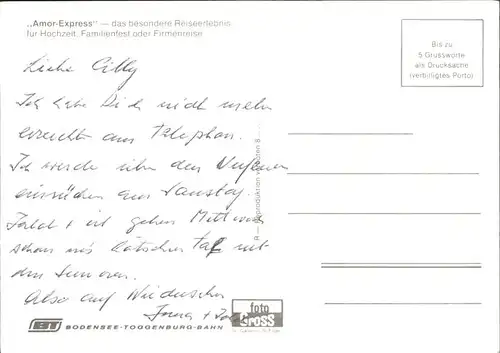 „Amor-Express" — das besondere Reiseerlebnis
für Hochzeit, Familienfest oder Firmenreise
Bis zu
5 Grussworte
als Drucksache
(verbilligtes Porto)
Liebe Cilly
Ich habe Dich nicht mehr
erreicht am Telephon.
Ich werde über den
einrücken am Samstag.
gehen Mittwoch
schon ins Lötschen Tal mit
den
Also auf Wiedersehen
foto
Gross
BT BODENSEE-TOGGENBURG-BAHN